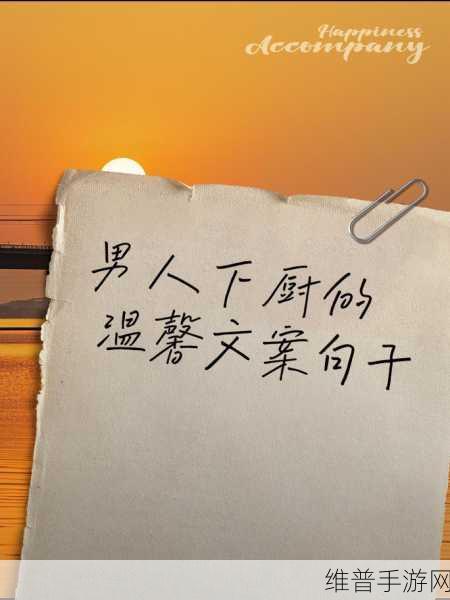 Happiness
Accompany
男人下厨的
温馨文案句子
维普手游网